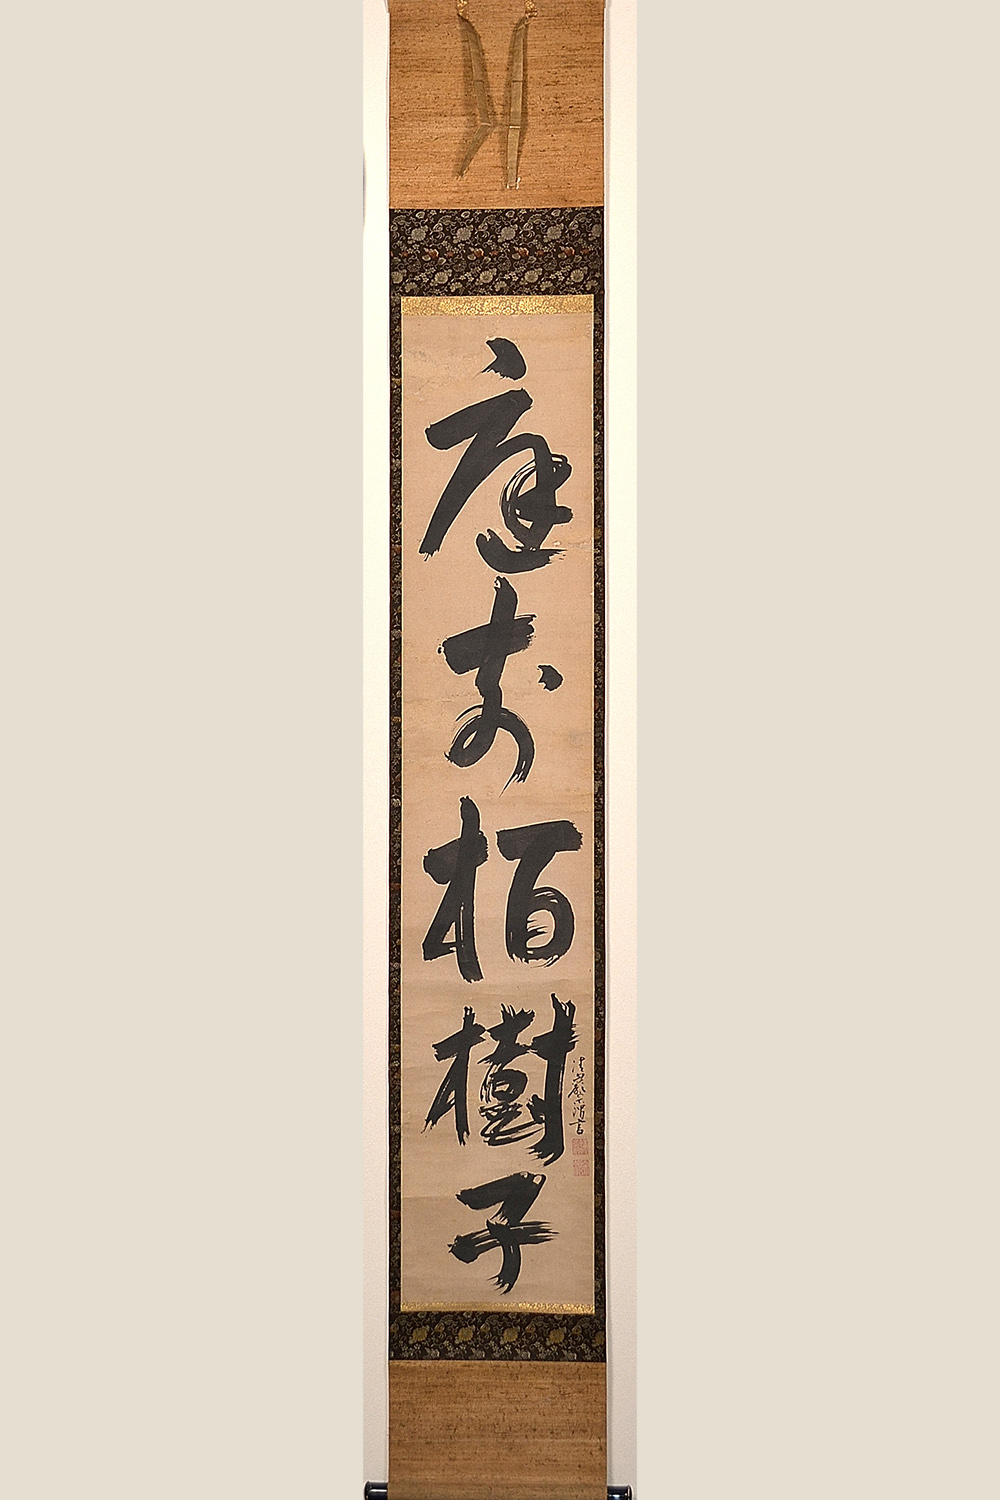 庭前栢樹子